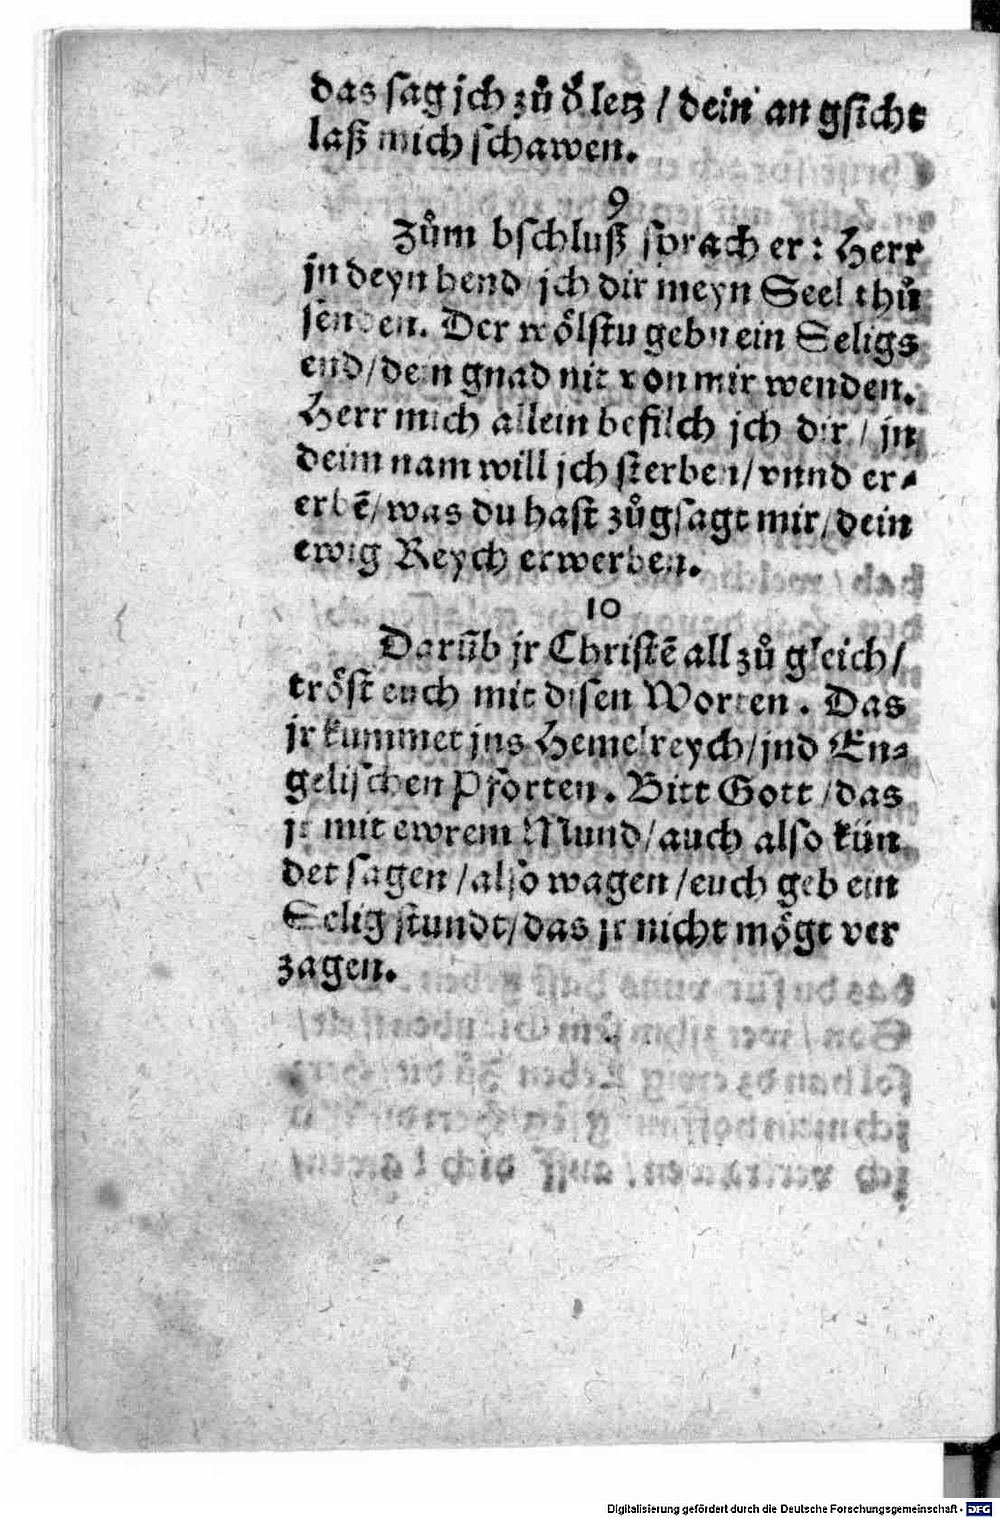 das sag jch zů d̓ letz / dein an gsicht
laß mich schawen.
9
Zům bschluß sprach er : Herr
jn deyn hend jch dir meyn Seel thů
senden. Der wölstu gebn ein Seligs
end/dein gnad nit von mir wenden.
Herr mich allein befilch jch dir / jn
deim nam will jch sterben/vnnd er⸗
erbē/was du hast zůgsagt mir/dein
ewig Reych erwerben.
10
Darüb jr Christē all zů gleich/
tröst euch mit disen Worten. Das
jr kummet jns Hemelreych/jnd En⸗
gelischen Pforten. Bitt Gott/das
jr mit ewrem Mund/auch also kün
det sagen/also wagen/euch geb ein
Selig stundt/das jr nicht mögt ver
zagen.
Digitalisierung gefördert durch die Deutsche Forschungsgemeinschaft - DFG